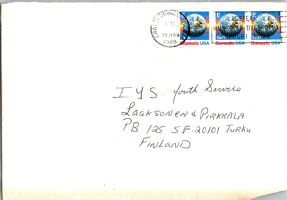 E E E
Earth
Domestic USA Domestic USA Domestic USA
IYS Youth Service
LAAKSONEN & PIRKKALA
PB 125 SF-20101 TURKU
FINLAND